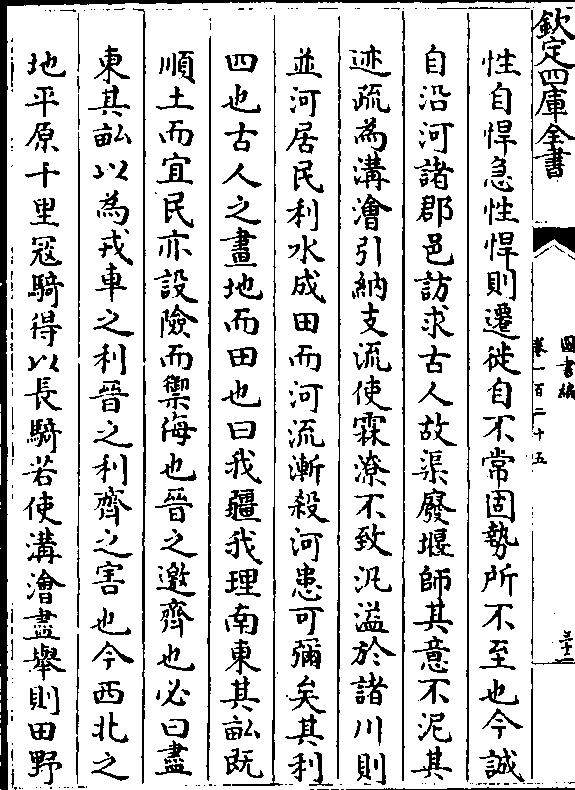 欽定四庫全書
圖書編
卷一百二十五
三十一
性自悍急性悍則遷徙自不常固勢所不至也今誠
自沿河諸郡邑訪求古人故渠廢堰師其意不泥其
迹疏為溝澮引納支流使霖潦不致汎溢於諸川則
並河居民利水成田而河流漸殺河患可彌矣其利
四也古人之畫地而田也曰我疆我理南東其畝既
順土而宜民亦設險而禦海也晉之邀齊也必曰盡
東其畝以為戎車之利晉之利齊之害也今西北之
地平原十里寇騎得以長騎若使溝澮盡舉則田野